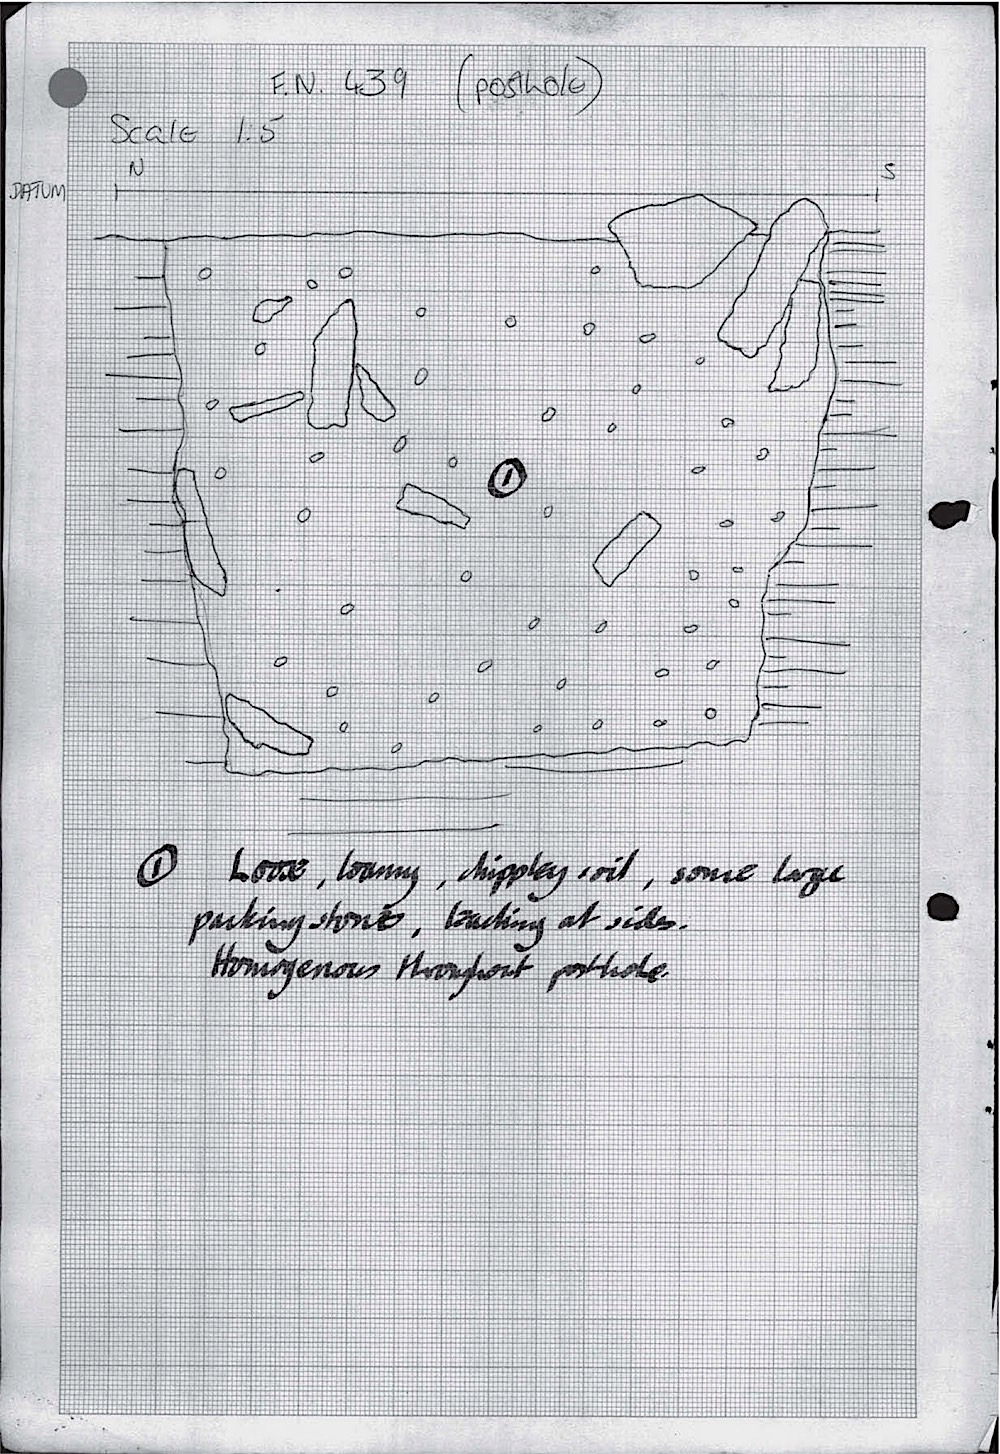 F.N. 439 (posthole)
Scale 1:5
N S
DATUM
1
1 Loose, loamy, chippley soil, some large
packing stones, leaching at sides.
Homogenous throughout posthole.